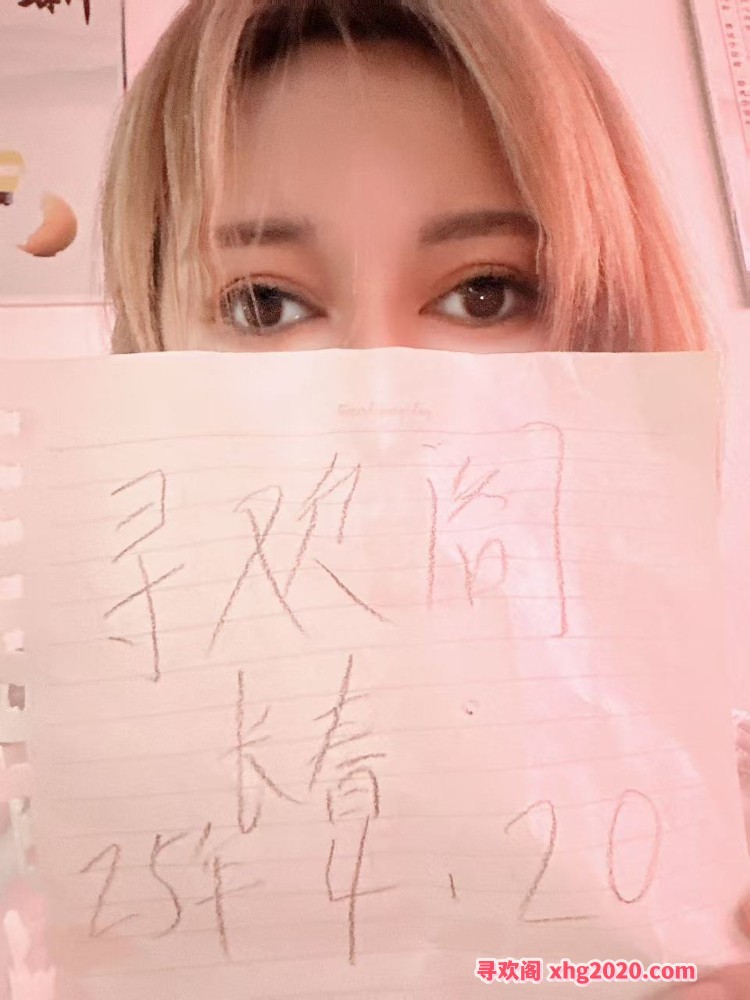 寻欢阁
长春
25年4.20
寻欢阁 xhg2020.com